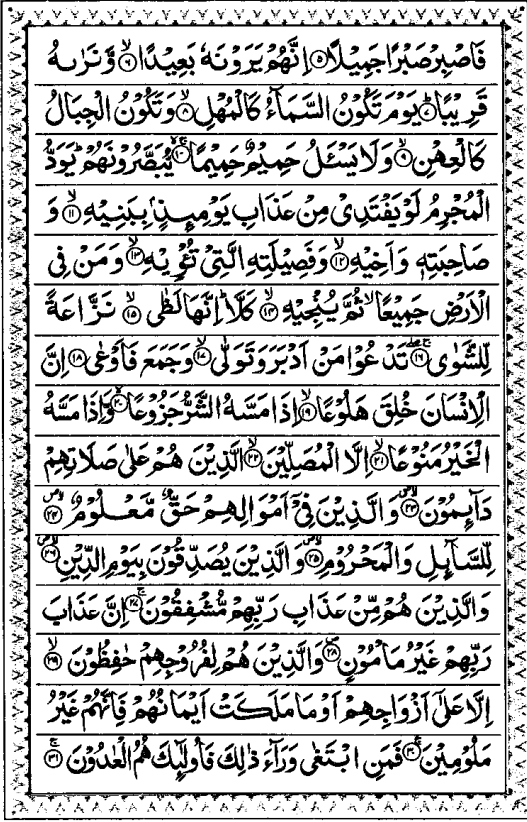 فَاصْبِرْ صَبْرًا جَمِيْلًا ۝۵ اِنَّهُمْ يَرَوْنَهٗ بَعِيْدًا ۝۶ وَّنَرٰىهُ
قَرِيْبًا ۝۷ يَوْمَ تَكُوْنُ السَّمَآءُ كَالْمُهْلِ ۝۸ وَتَكُوْنُ الْجِبَالُ
كَالْعِهْنِ ۝۹ وَلَا يَسْـَٔلُ حَمِيْمٌ حَمِيْمًا ۝۱۰ يُّبَصَّرُوْنَهُمْ ؕ يَوَدُّ
الْمُجْرِمُ لَوْ يَفْتَدِىْ مِنْ عَذَابِ يَوْمِىِٕذٍۭ بِبَنِيْهِ ۝۱۱ وَ
صَاحِبَتِهٖ وَاَخِيْهِ ۝۱۲ وَفَصِيْلَتِهِ الَّتِىْ تُـْٔوِيْهِ ۝۱۳ وَمَنْ فِى
الْاَرْضِ جَمِيْعًا ۙ ثُمَّ يُنْجِيْهِ ۝۱۴ كَلَّا ؕ اِنَّهَا لَظٰى ۝۱۵ نَزَّاعَةً
لِّلشَّوٰى ۝۱۶ تَدْعُوْا مَنْ اَدْبَرَ وَتَوَلّٰى ۝۱۷ وَجَمَعَ فَاَوْعٰى ۝۱۸ اِنَّ
الْاِنْسَانَ خُلِقَ هَلُوْعًا ۝۱۹ اِذَا مَسَّهُ الشَّرُّ جَزُوْعًا ۝۲۰ وَّاِذَا مَسَّهُ
الْخَيْرُ مَنُوْعًا ۝۲۱ اِلَّا الْمُصَلِّيْنَ ۝۲۲ الَّذِيْنَ هُمْ عَلٰى صَلَاتِهِمْ
دَآىِٕمُوْنَ ۝۲۳ وَالَّذِيْنَ فِىْٓ اَمْوَالِهِمْ حَقٌّ مَّعْلُوْمٌ ۝۲۴
لِّلسَّآىِٕلِ وَالْمَحْرُوْمِ ۝۲۵ وَالَّذِيْنَ يُصَدِّقُوْنَ بِيَوْمِ الدِّيْنِ ۝۲۶
وَالَّذِيْنَ هُمْ مِّنْ عَذَابِ رَبِّهِمْ مُّشْفِقُوْنَ ۝۲۷ اِنَّ عَذَابَ
رَبِّهِمْ غَيْرُ مَاْمُوْنٍ ۝۲۸ وَالَّذِيْنَ هُمْ لِفُرُوْجِهِمْ حٰفِظُوْنَ ۝۲۹
اِلَّا عَلٰٓى اَزْوَاجِهِمْ اَوْ مَا مَلَكَتْ اَيْمَانُهُمْ فَاِنَّهُمْ غَيْرُ
مَلُوْمِيْنَ ۝۳۰ فَمَنِ ابْتَغٰى وَرَآءَ ذٰلِكَ فَاُولٰٓىِٕكَ هُمُ الْعٰدُوْنَ ۝۳۱